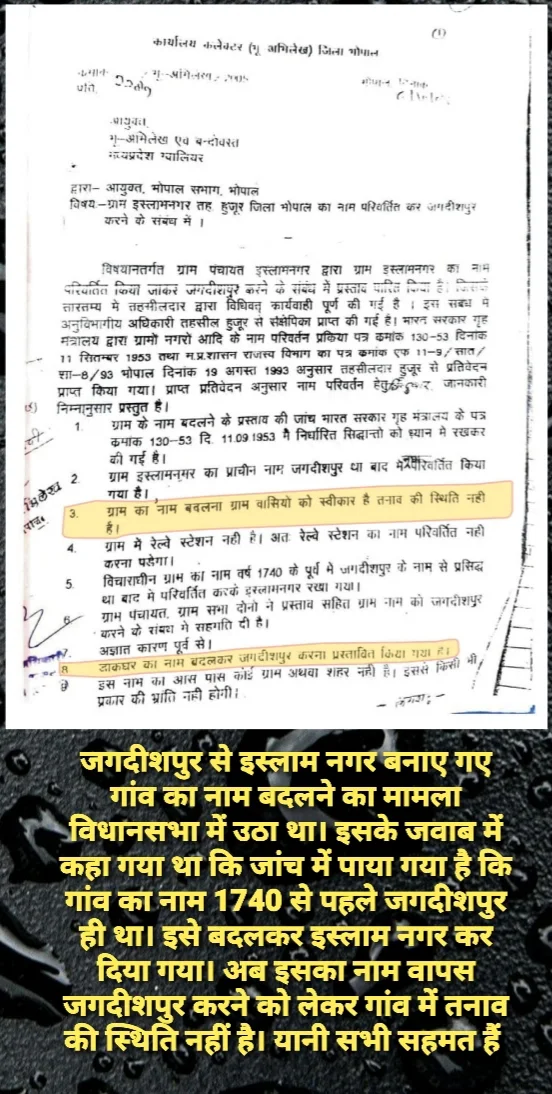 (1)
कार्यालय कलेक्टर (भू अभिलेख) जिला भोपाल
प्रति,
आयुक्त,
भू–अभिलेख एव बन्दोवस्त
मध्यप्रदेश ग्वालियर
द्वारा– आयुक्त, भोपाल सभाग, भोपाल
विषय–ग्राम इस्लामनगर तह हुजूर जिला भोपाल का नाम परिवर्तित कर जगदीशपुर
करने के संबध में ।
विषयान्तर्गत ग्राम पंचायत इस्लामनगर द्वारा ग्राम इस्लामनगर का नाम
परिवर्तित किया जाकर जगदीशपुर करने के संबंध में प्रस्ताव पारित किया है। जिसके
तारतम्य मे तहसीलदार द्वारा विधिवत् कार्यवाही पूर्ण की गई है । इस सबध मे
अनुविभागीय अधिकारी तहसील हुजूर से संक्षेपिका प्राप्त की गई है। भारत सरकार गृह
मंत्रालय द्वारा ग्रामो नगरो आदि के नाम परिवर्तन प्रकिया पत्र कमांक 130–53 दिनांक
11 सितम्बर 1953 तथा म.प्र.शासन राजस्व विभाग का पत्र कमांक एफ 11–9/सात/
शा–8/93 भोपाल दिनांक 19 अगस्त 1993 अनुसार तहसीलदार हुजूर से प्रतिवेदन
प्राप्त किया गया। प्राप्त प्रतिवेदन अनुसार नाम परिवर्तन हेतु जानकारी
निम्नानुसार प्रस्तुत है।
1. ग्राम के नाम बदलने के प्रस्ताव की जांच भारत सरकार गृह मंत्रालय के पत्र
कमांक 130–53 दि. 11.09.1953 मै निर्धारित सिद्वान्तो को ध्यान मे रखकर
की गई है।
2. ग्राम इस्लामनगर का प्राचीन नाम जगदीशपुर था बाद मे नाम परिवर्तित किया
गया है।
3. ग्राम का नाम बदलना ग्राम वासियो को स्वीकार है तनाव की स्थिति नही
है।
4. ग्राम में रेल्वे स्टेशन नही है। अतः रेल्वे स्टेशन का नाम परिवर्तित नही
करना पडेगा।
5. विचाराधीन ग्राम का नाम वर्ष 1740 के पूर्व मे जगदीशपुर के नाम से प्रसिद्व
था बाद मे परिवर्तित करके इस्लामनगर रखा गया।
6 ग्राम पंचायत, ग्राम सभा दोनो ने प्रस्ताव सहित ग्राम नाम को जगदीशपुर
करने के संबध मे सहमति दी है।
7. अज्ञात कारण पूर्व से।
8 डाकघर का नाम बदलकर जगदीशपुर करना प्रस्तावित किया गया है।
9 इस नाम का आस पास कोई ग्राम अथवा शहर नही है। इससे किसी भी
प्रकार की भ्रांति नही होगी।
जगदीशपुर से इस्लाम नगर बनाए गए
गांव का नाम बदलने का मामला
विधानसभा में उठा था। इसके जवाब में
कहा गया था कि जांच में पाया गया है कि
गांव का नाम 1740 से पहले जगदीशपुर
ही था। इसे बदलकर इस्लाम नगर कर
दिया गया। अब इसका नाम वापस
जगदीशपुर करने को लेकर गांव में तनाव
की स्थिति नहीं है। यानी सभी सहमत हैं